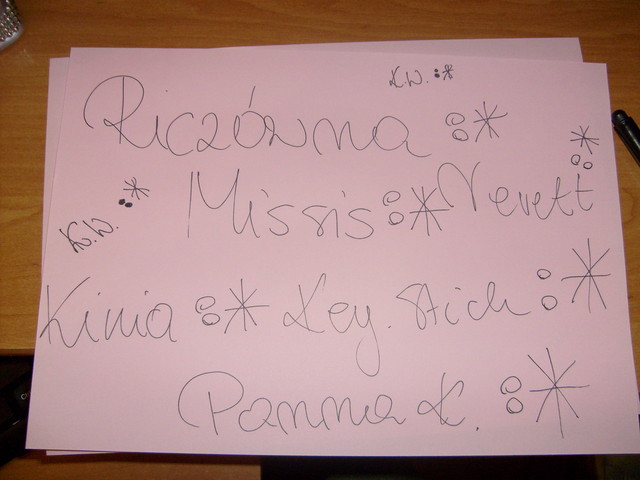 K.W. :*
Riczówna :*
K.W. :*
Missis :* Nevett :*
Kinia :* Key. Stich :*
Panna K. :*